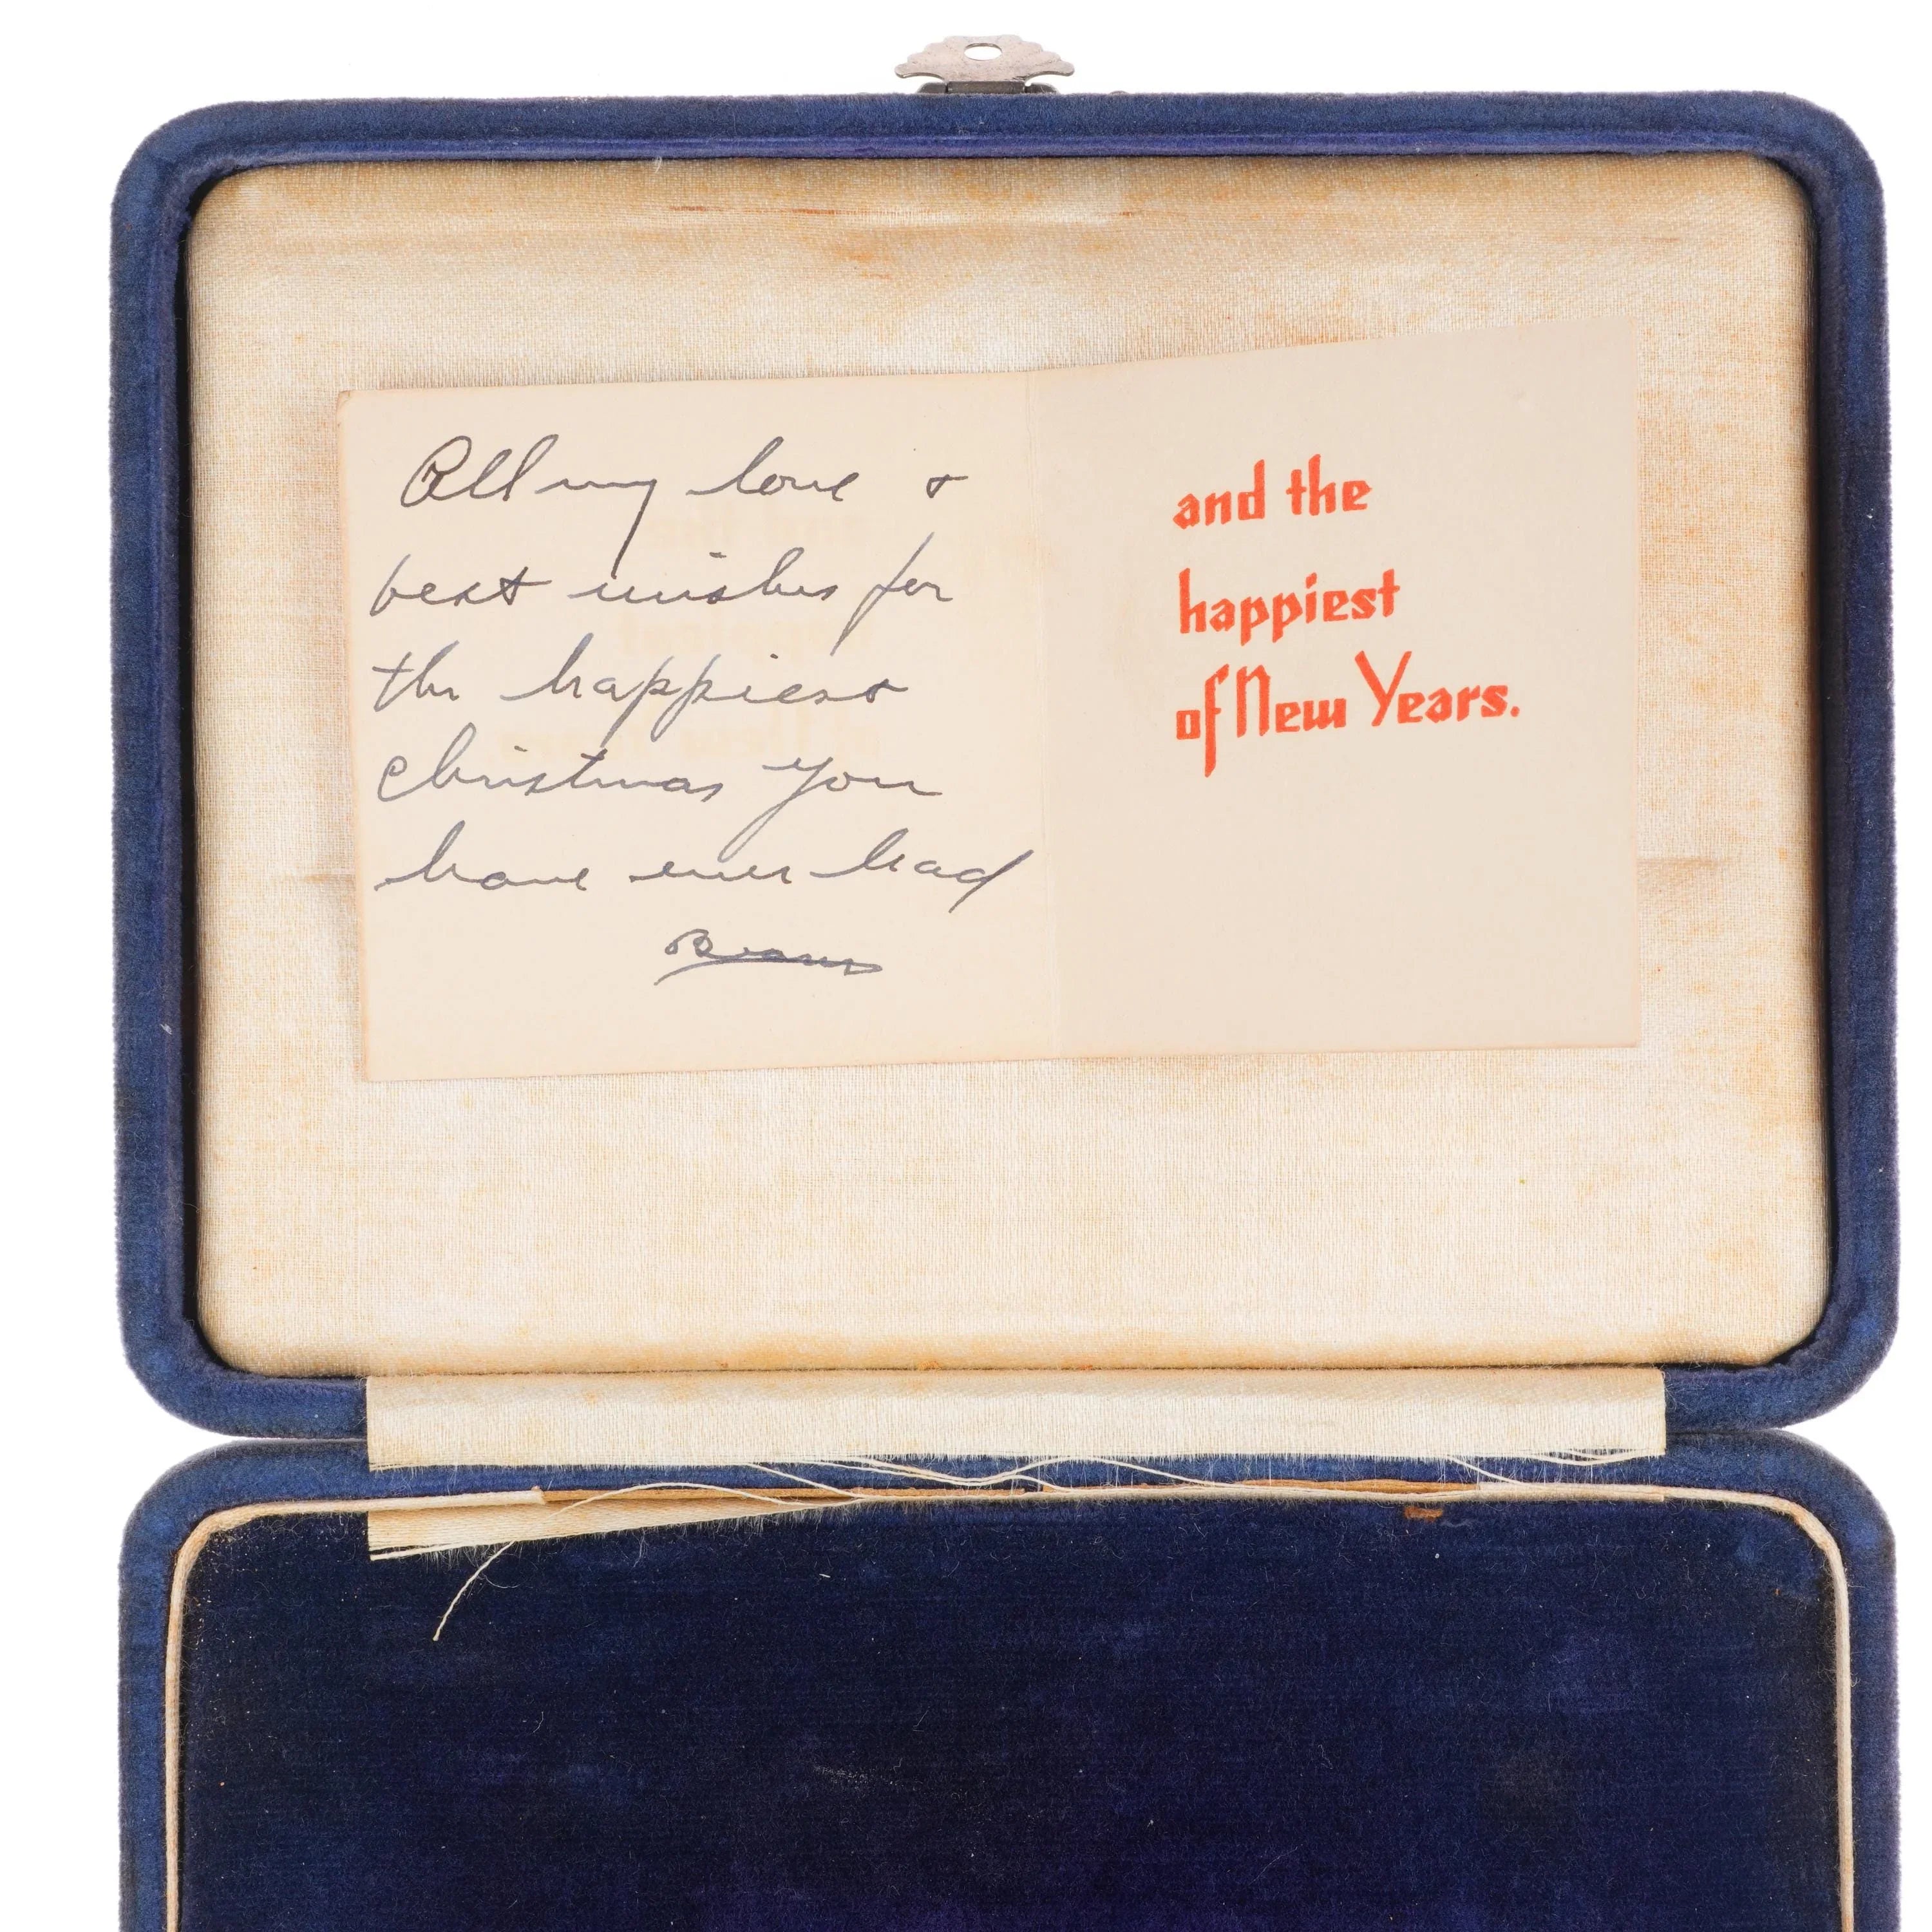 All my love &
best wishes for
the happiest
christmas you
have ever had
and the
happiest
of New Years.